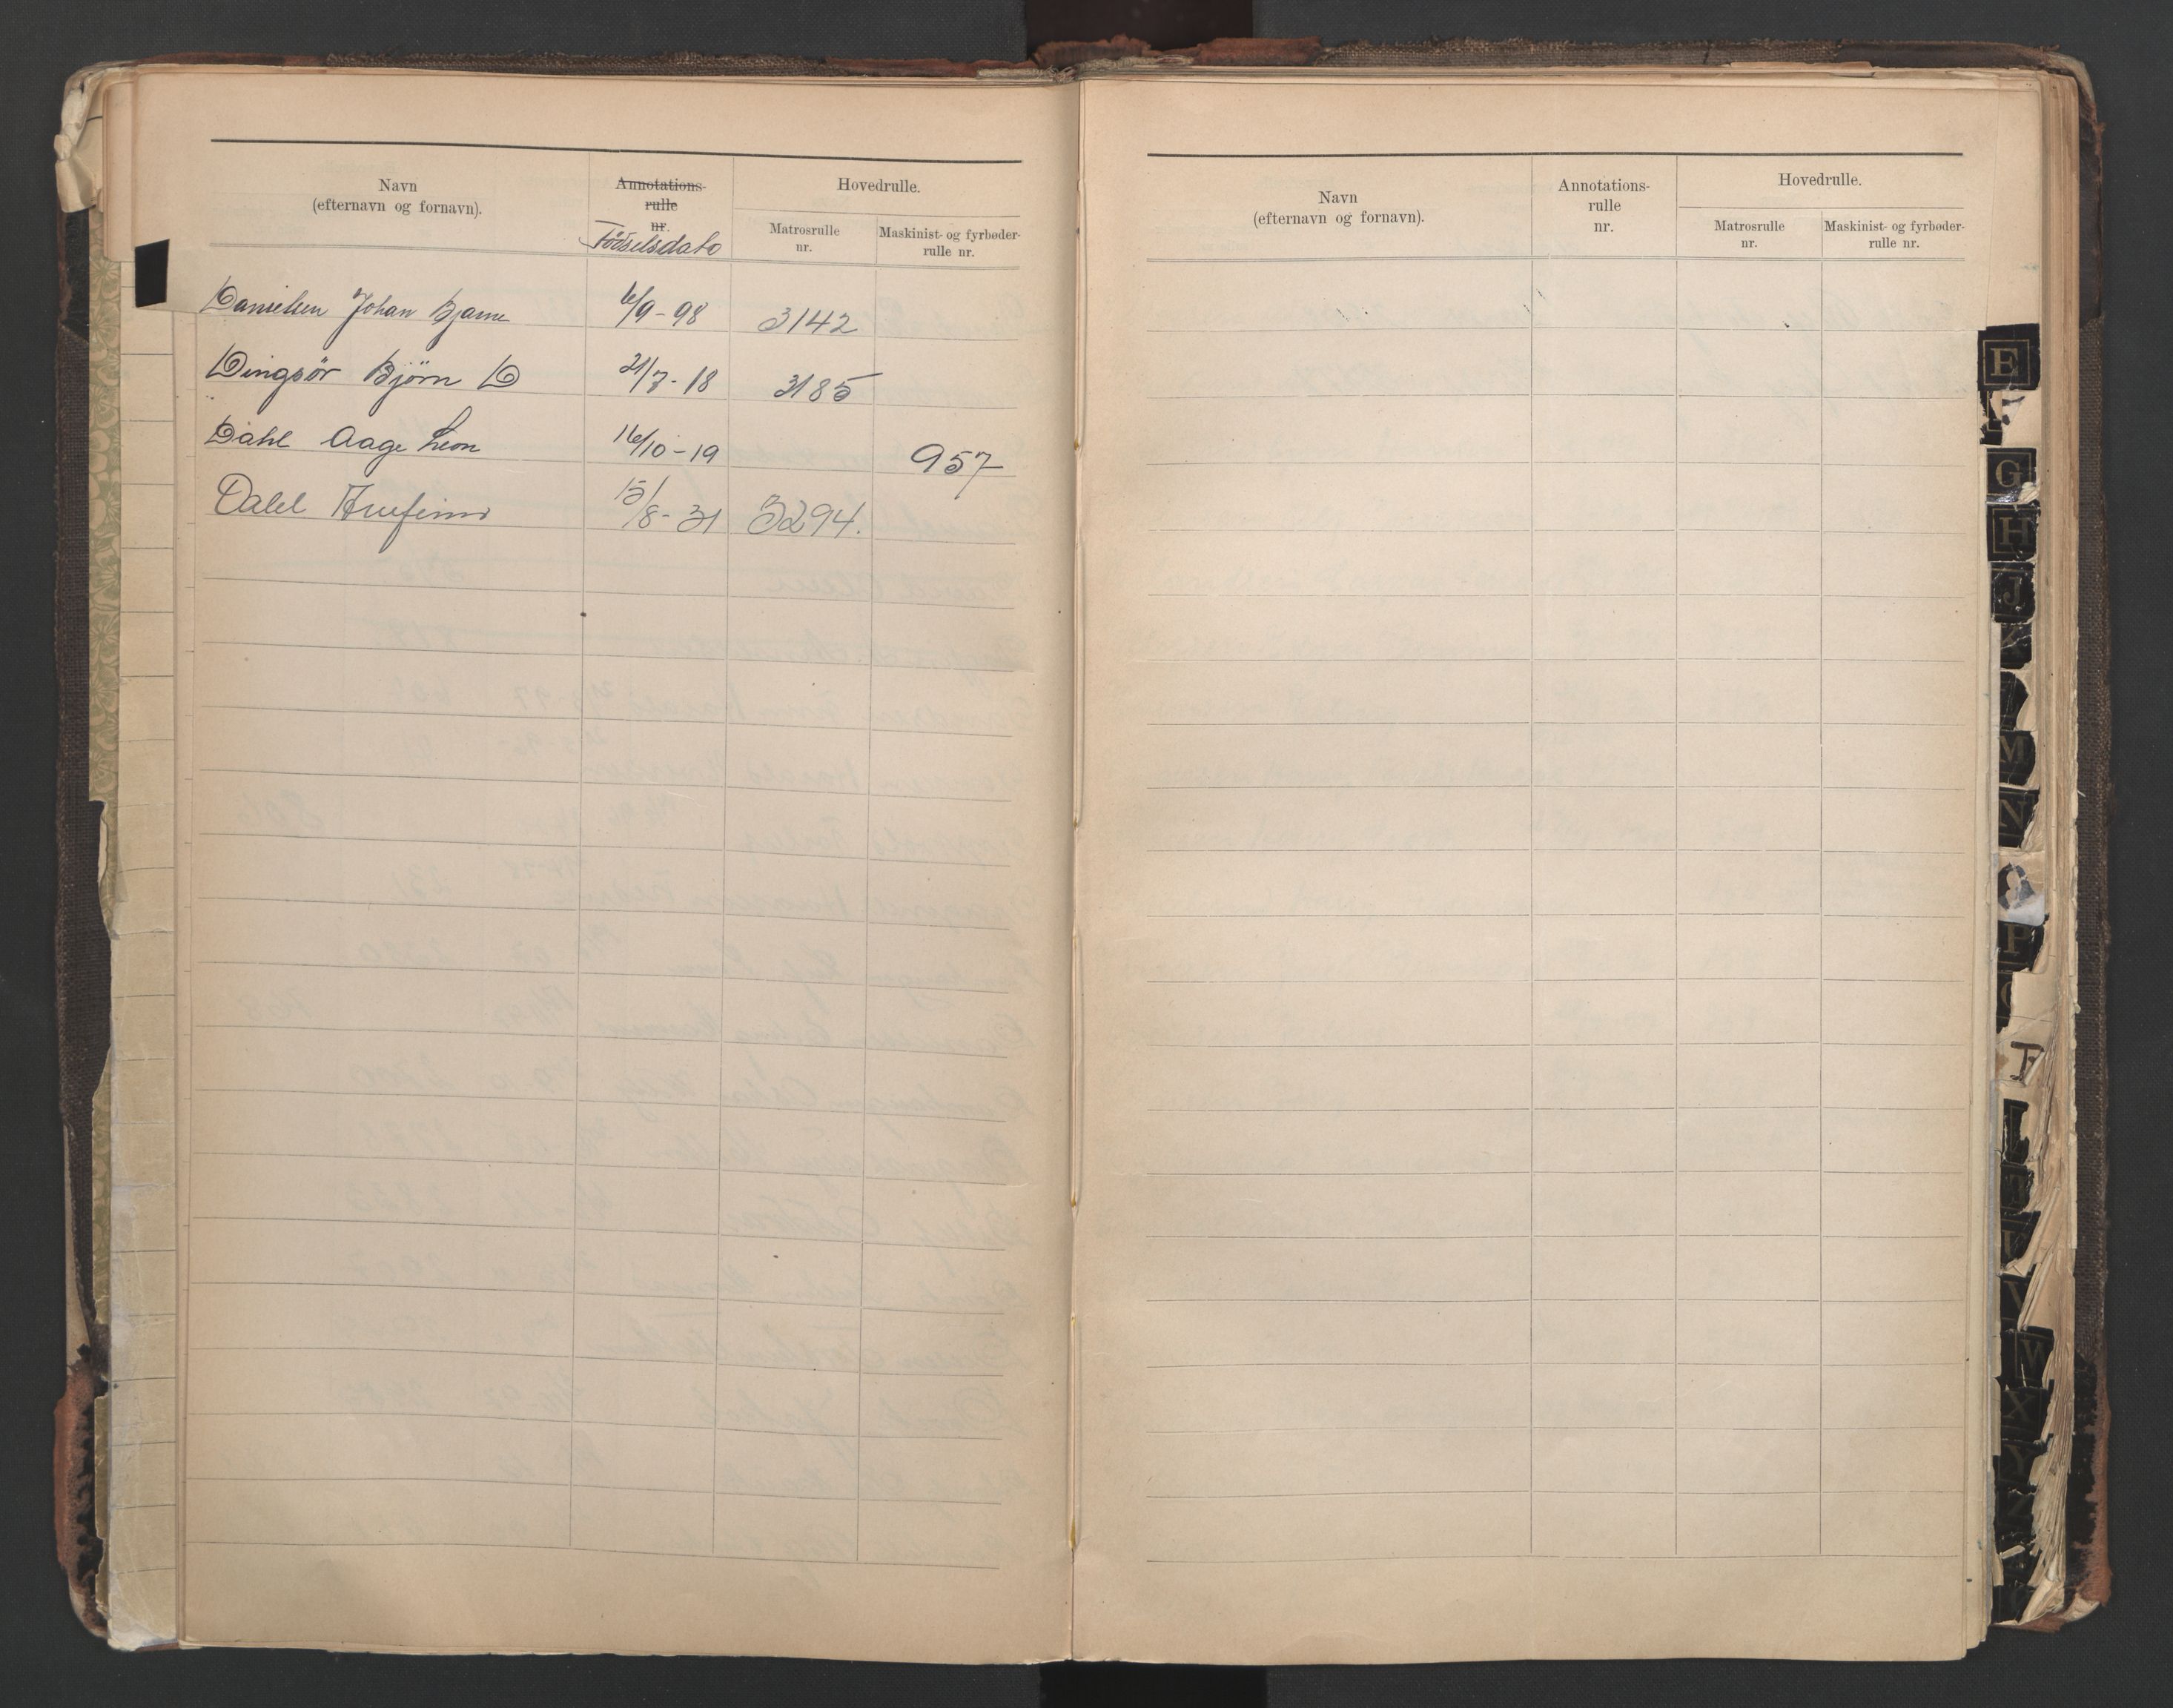 Navn
(efternavn og fornavn).
Annotations-
rulle
nr.
Födselsdato
Hovedrulle.
Matrosrulle
nr.
Maskinist- og fyrbøder-
rulle nr.
Danielsen Johan Bjarne 6/9-98 3142
Dingsör Björn D 21/7-18 3185
Dahl Aage Leon 16/10-19 957
Dalel 15/8-31 3294.
Navn
(efternavn og fornavn).
Annotations-
rulle
nr.
Hovedrulle.
Matrosrulle
nr.
Maskinist- og fyrbøder-
rulle nr.
E
G
H
J
M
N
P
W
X
Y
Z